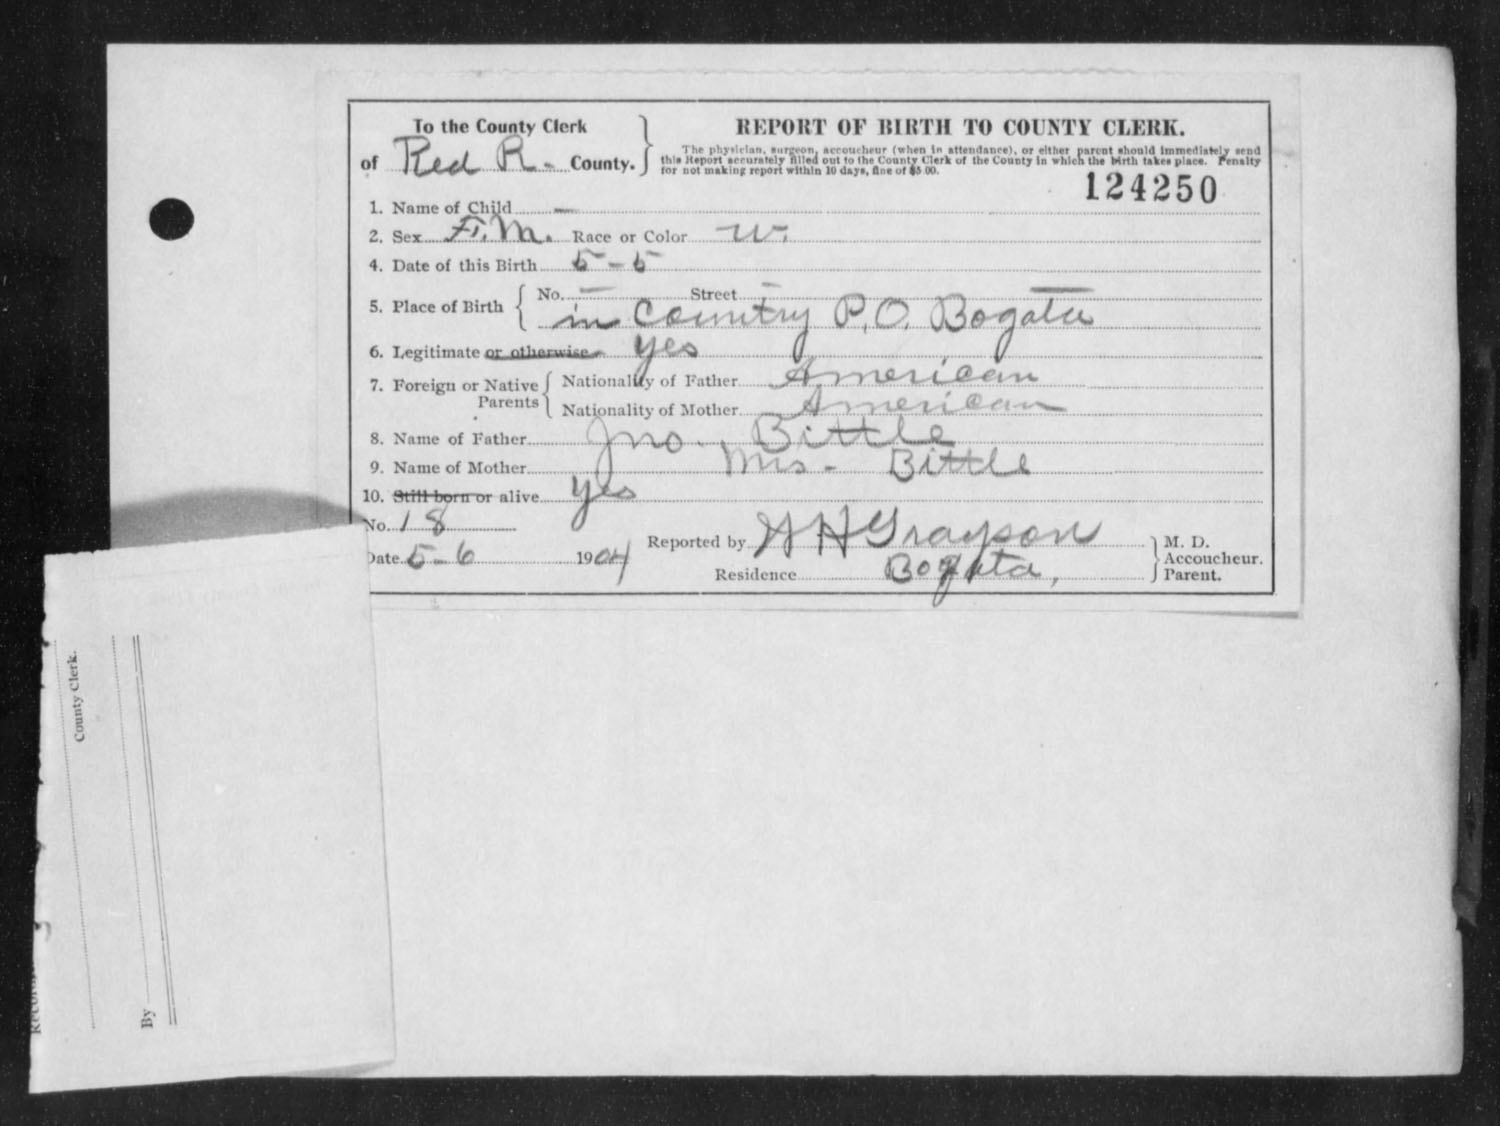 To the County Clerk
of Red R. County.
REPORT OF BIRTH TO COUNTY CLERK.
The physician, surgeon, accoucheur (when in attendance), or either parent should immediately send
this Report accurately filled out to the County Clerk of the County in which the birth takes place. Penalty
for not making report within 10 days, fine of $5 00.
124250
1. Name of Child —
2. Sex F.M. Race or Color W.
4. Date of this Birth 5-5
5. Place of Birth { No. — Street —
in Country P.O. Bogata
6. Legitimate or otherwise yes
7. Foreign or Native Parents { Nationality of Father American
Nationality of Mother American
8. Name of Father Jno. Bittle
9. Name of Mother Mrs - Bittle
10. Still born or alive yes
No. 18
Date 5-6 1904
Reported by W H Grayson
Residence Bogata,
M. D.
Accoucheur.
Parent.
County Clerk.
By